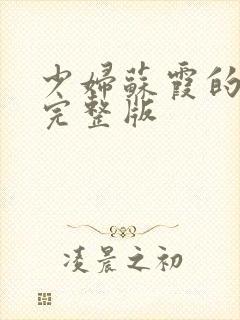 少婦蘇霞的
完整版
凌晨之初